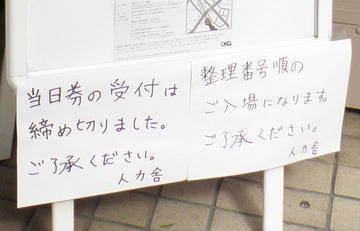 当日券の受付は
締め切りました。
ご了承ください。
人力舎
整理番号順の
ご入場になります。
ご了承ください。
人力舎